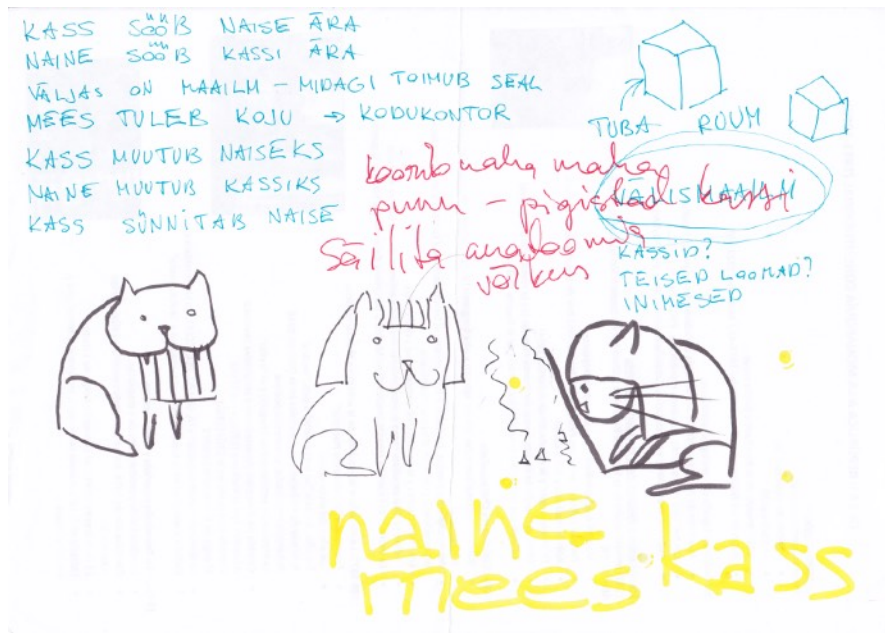 KASS SÖÖB NAISE ÄRA
NAINE SÖÖB KASSI ÄRA
VÄLJAS ON MAAILM – MIDAGI TOIMUB SEAL
MEES TULEB KOJU → KODUKONTOR
KASS MUUTUB NAISEKS
NAINE MUUTUB KASSIKS
KASS SÜNNITAB NAISE
TUBA RUUM
VÄLISMAAILM
KASSID?
TEISED LOOMAD?
INIMESED
koorib naha maha
punn – pigistad kassi
Säilita anatoomia
naine
mees kass